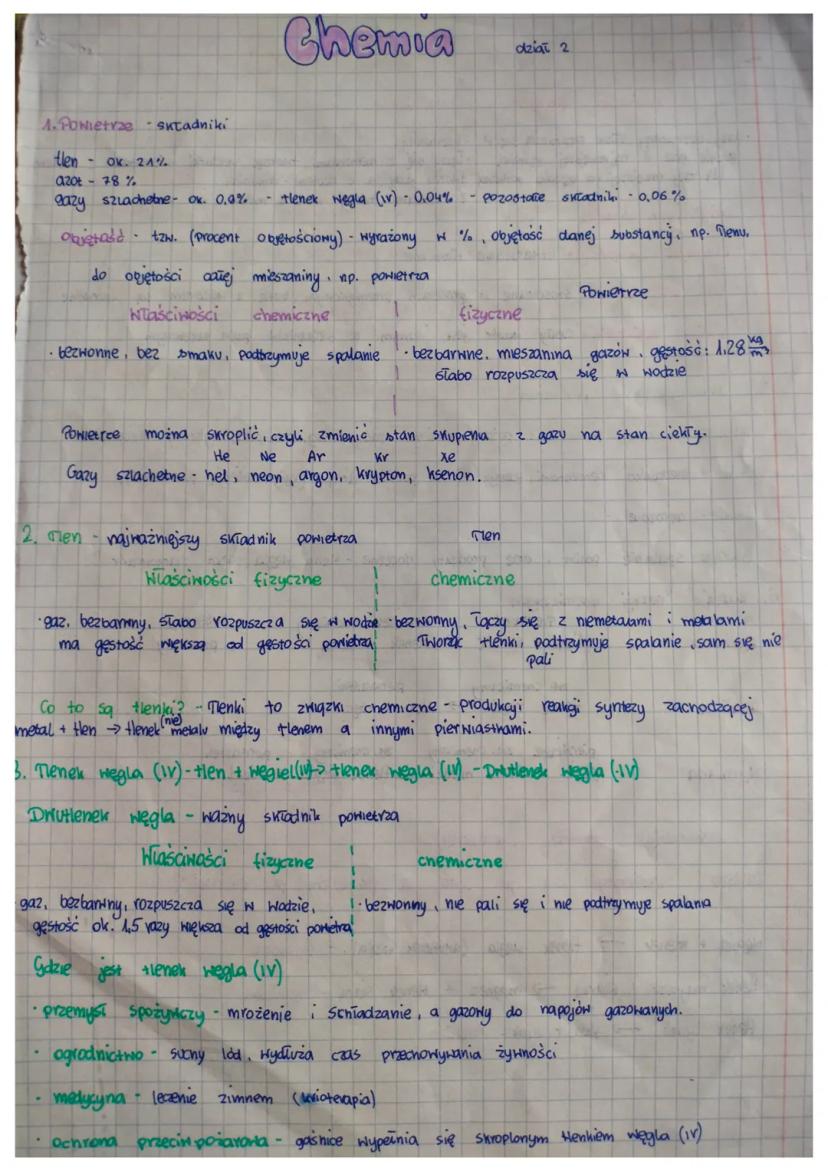 Chemia dział 2
1. Powietrze - składniki
tlen - ok. 21%
azot - 78 %
gazy szlachetne - ok. 0,9% - tlenek węgla (IV) - 0,04% - pozostałe składniki - 0,06%
Objętość - tzw. (procent objętościowy) - wyrażony w %, objętość danej substancji, np. Tlenu,
do objętości całej mieszaniny, np. powietrza
Powietrze
Właściwości chemiczne fizyczne
· bezwonne, bez smaku, podtrzymuje spalanie · bezbarwne, mieszanina gazów, gęstość: 1,28 kg/m³
słabo rozpuszcza się w wodzie
Powietrze można skroplić, czyli zmienić stan skupienia z gazu na stan ciekły.
He Ne Ar Kr Xe
Gazy szlachetne - hel, neon, argon, krypton, ksenon.
2. Tlen - najważniejszy składnik powietrza Tlen
Właściwości fizyczne chemiczne
· gaz, bezbarwny, słabo rozpuszcza się w wodzie · bezwonny, łączy się z niemetalami i metalami
ma gęstość większą od gęstości powietrza Tworząc tlenki, podtrzymuje spalanie, sam się nie
pali
Co to są tlenki? - Tlenki to związki chemiczne - produkcji reakcji syntezy zachodzącej
metal + tlen → tlenek (nie)metalu między tlenem a innymi pierwiastkami.
3. Tlenek węgla (IV) - tlen + węgiel(IV) → tlenek węgla (IV) - Dwutlenek węgla (IV)
Dwutlenek węgla - ważny składnik powietrza
Właściwości fizyczne chemiczne
gaz, bezbarwny, rozpuszcza się w wodzie, · bezwonny, nie pali się i nie podtrzymuje spalania
gęstość ok. 1,5 razy większa od gęstości powietrza
Gdzie jest tlenek węgla (IV)
· przemysł spożywczy - mrożenie i schładzanie, a gazowy do napojów gazowanych.
· ogrodnictwo - suchy lód, wydłuża czas przechowywania żywności
· medycyna - leczenie zimnem (krioterapia)
· ochrona przeciwpożarowa - gaśnice wypełnia się skroplonym tlenkiem węgla (IV)